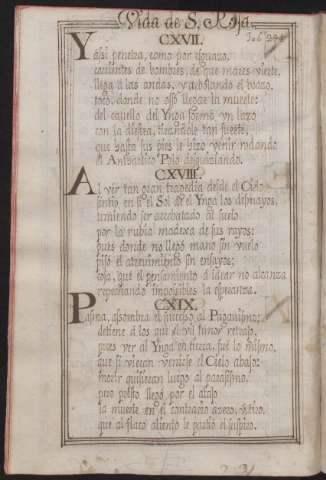 Vida de S. Rosa.
CXVII.
Yassi penetra, como por
torrentes de hombres, de que mares vierte,
llega á las andas, y
toco, donde no osso llegar la muerte:
del cavello del Ynga formo un lazo
con la diestra, tirandole tan fuerte,
que hasta sus pies le hizo venir rodando
el Antartico Polo
CXVIII.
Al ver tan gran tragedia desde el Cielo
sintio en si el Sol de el Ynga los desmayos,
temiendo ser arrebatado al suelo
por la rubia madexa de sus rayos:
pues donde no llegó mano sin vuelo
piso el atrevimiento sin ensayos:
cosa, que el pensamiento á idear no alcanza
impossibles la esperanza.
CXIX.
Pasma, assombra el sucesso al Paganismo;
detiene á los que el vil temor
pues ver al Ynga en tierra, fue lo mismo,
que si vieran venirse el Cielo abajo:
morir quisieran luego al parasismo:
pero presto llegó por el atajo
la muerte en el contrario
que al flaco aliento le